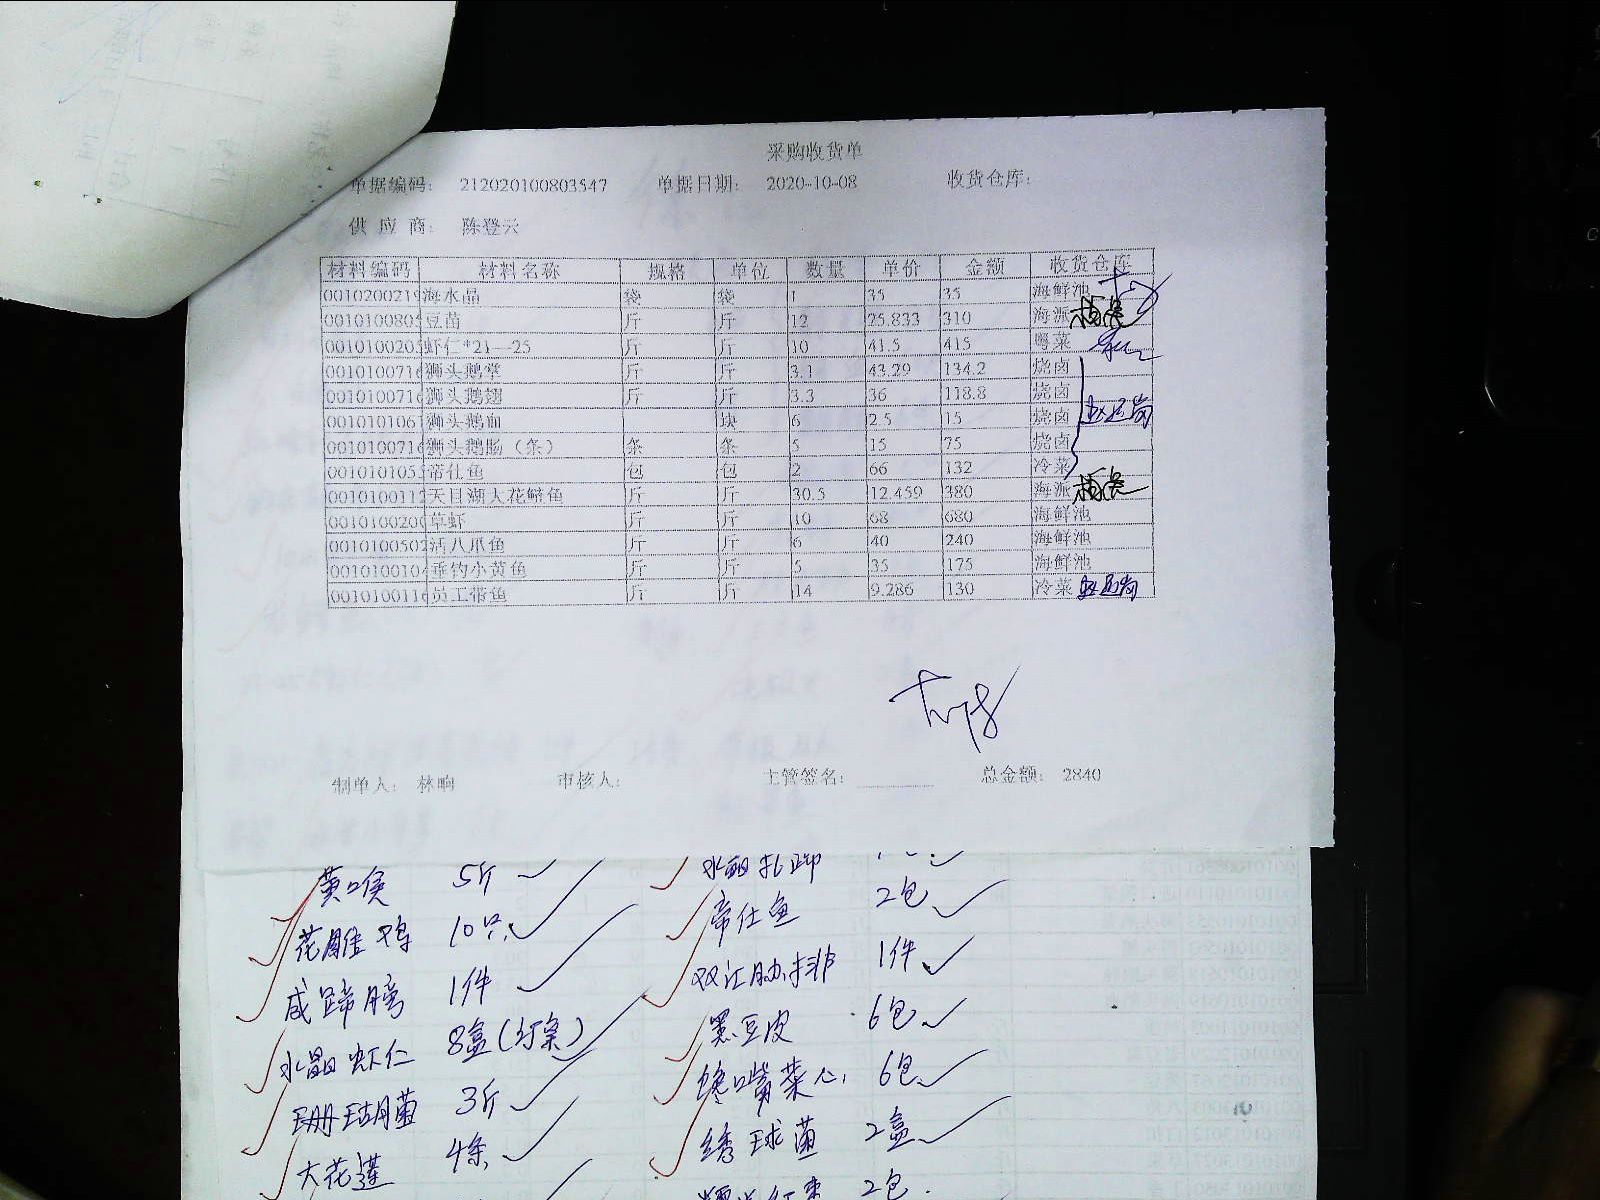 采购收货单
单据编码: 212020100803547 单据日期: 2020-10-08 收货仓库:
供 应 商: 陈登云
材料编码 材料名称 规格 单位 数量 单价 金额 收货仓库
0010200219 海水晶 袋 袋 1 35 35 海鲜池
001010080 豆苗 斤 斤 12 25.833 310 海派
001010020 虾仁*21—25 斤 斤 10 41.5 415 粤菜
001010071 狮头鹅掌 斤 斤 3.1 43.29 134.2 烧卤
001010071 狮头鹅翅 斤 斤 3.3 36 118.8 烧卤
001010106 狮头鹅血 块 6 2.5 15 烧卤
001010071 狮头鹅肠（条） 条 条 5 15 75 烧卤
001010105 帝仕鱼 包 包 2 66 132 冷菜
001010011 天目湖大花鲢鱼 斤 斤 30.5 12.459 380 海派
001010020 草虾 斤 斤 10 68 680 海鲜池
001010050 活八爪鱼 斤 斤 6 40 240 海鲜池
001010010 垂钓小黄鱼 斤 斤 5 35 175 海鲜池
001010011 员工带鱼 斤 斤 14 9.286 130 冷菜
制单人: 林晌 审核人: 主管签名: 总金额: 2840
黄口侯 5斤
花雕鸡 10只
帝仕鱼 2包
咸蹄膀 1件
双汇肋排 1件
水晶虾仁 8盒
黑豆皮 6包
珊瑚菌 3斤
馋嘴菜心 6包
大花莲 4条
绣球菌 2盒
2包